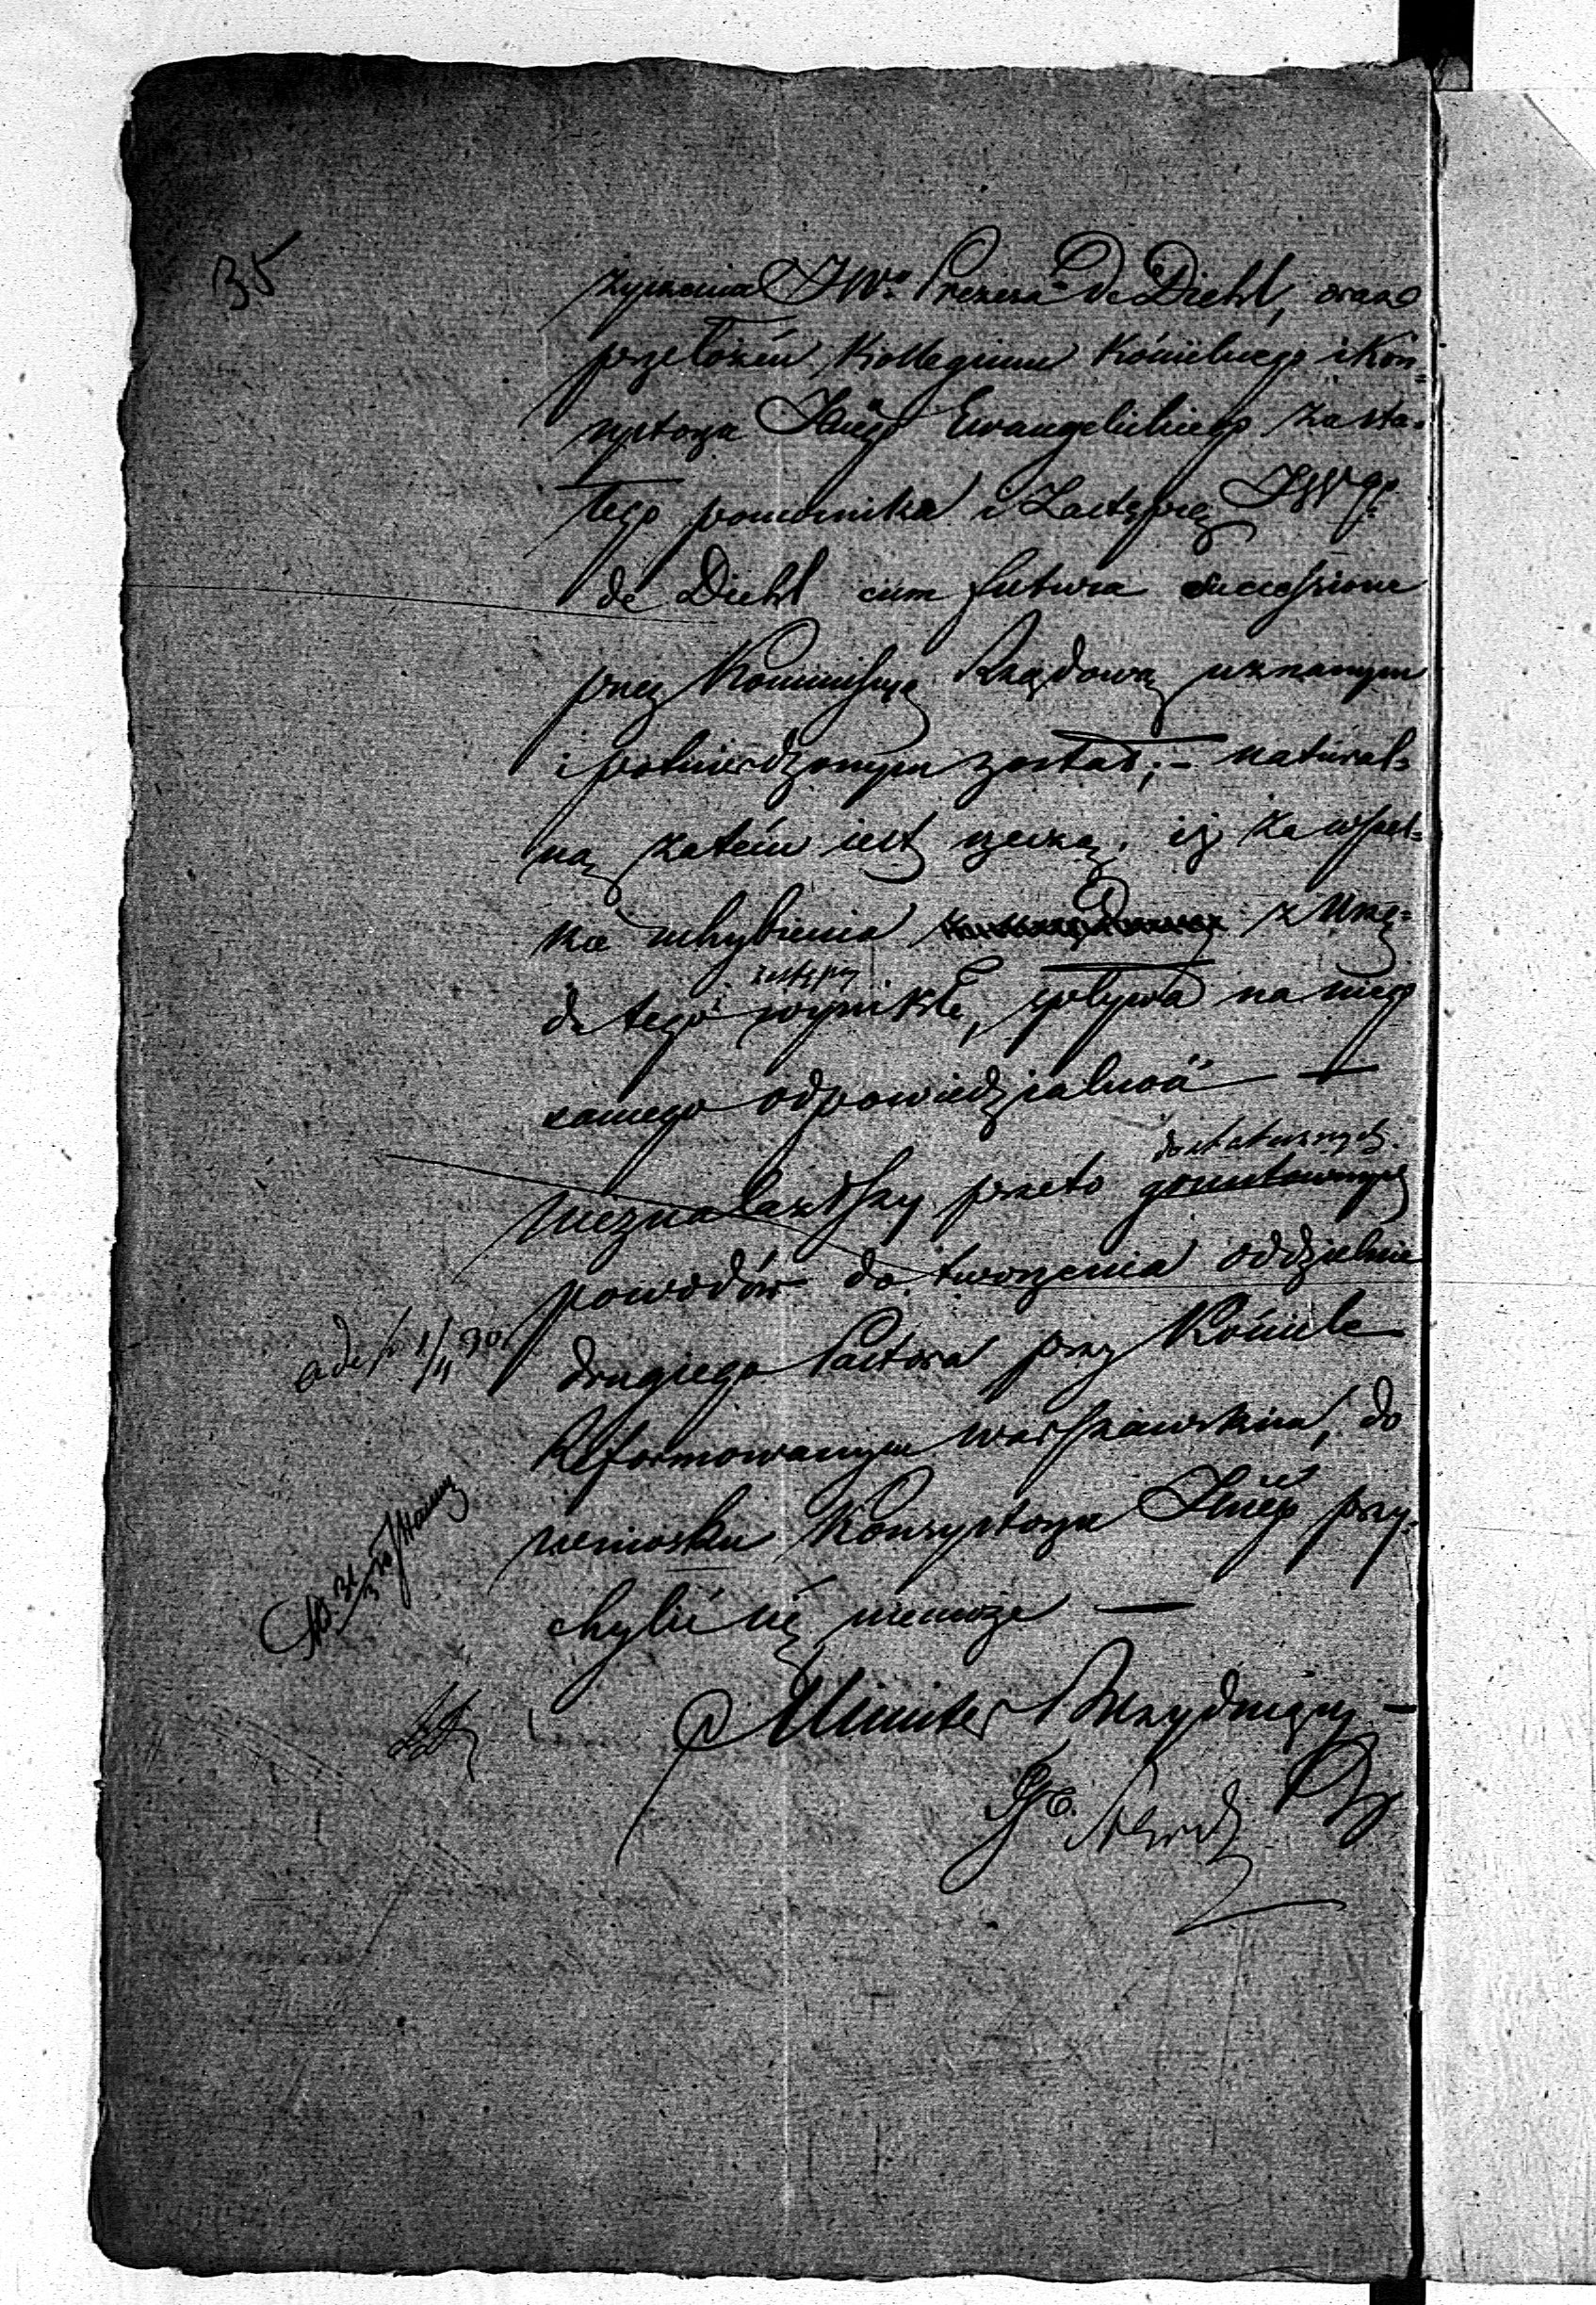 35
życzenia JWo Prezesa de Diehl, oraz
przełożeń Kollegium Kościelnego i Kon=
systorza Jlnego Ewangelickiego za sta=
łego pomocnika i Zastępcę JWgo
de Diehl cum futura successione
przez Kommissyę Rządową uznanym
i potwierdzonym został; – natural=
ną zatém iest rzeczą, iż za wszel=
kie uchybienia z Urzę=
zastępcy
du tego wynikłe, spływa na niego
samego odpowiedzialność —
dostatecznych
Nieznalazłszy przeto gruntownych
powodów do tworzenia oddzielnie
drugiego Pastora przy Kościele
Reformowanym Warszawskim, do
wniosku Konsystorza Jlnego przy=
chylić się niemoże —
Minister Prezyduiący –